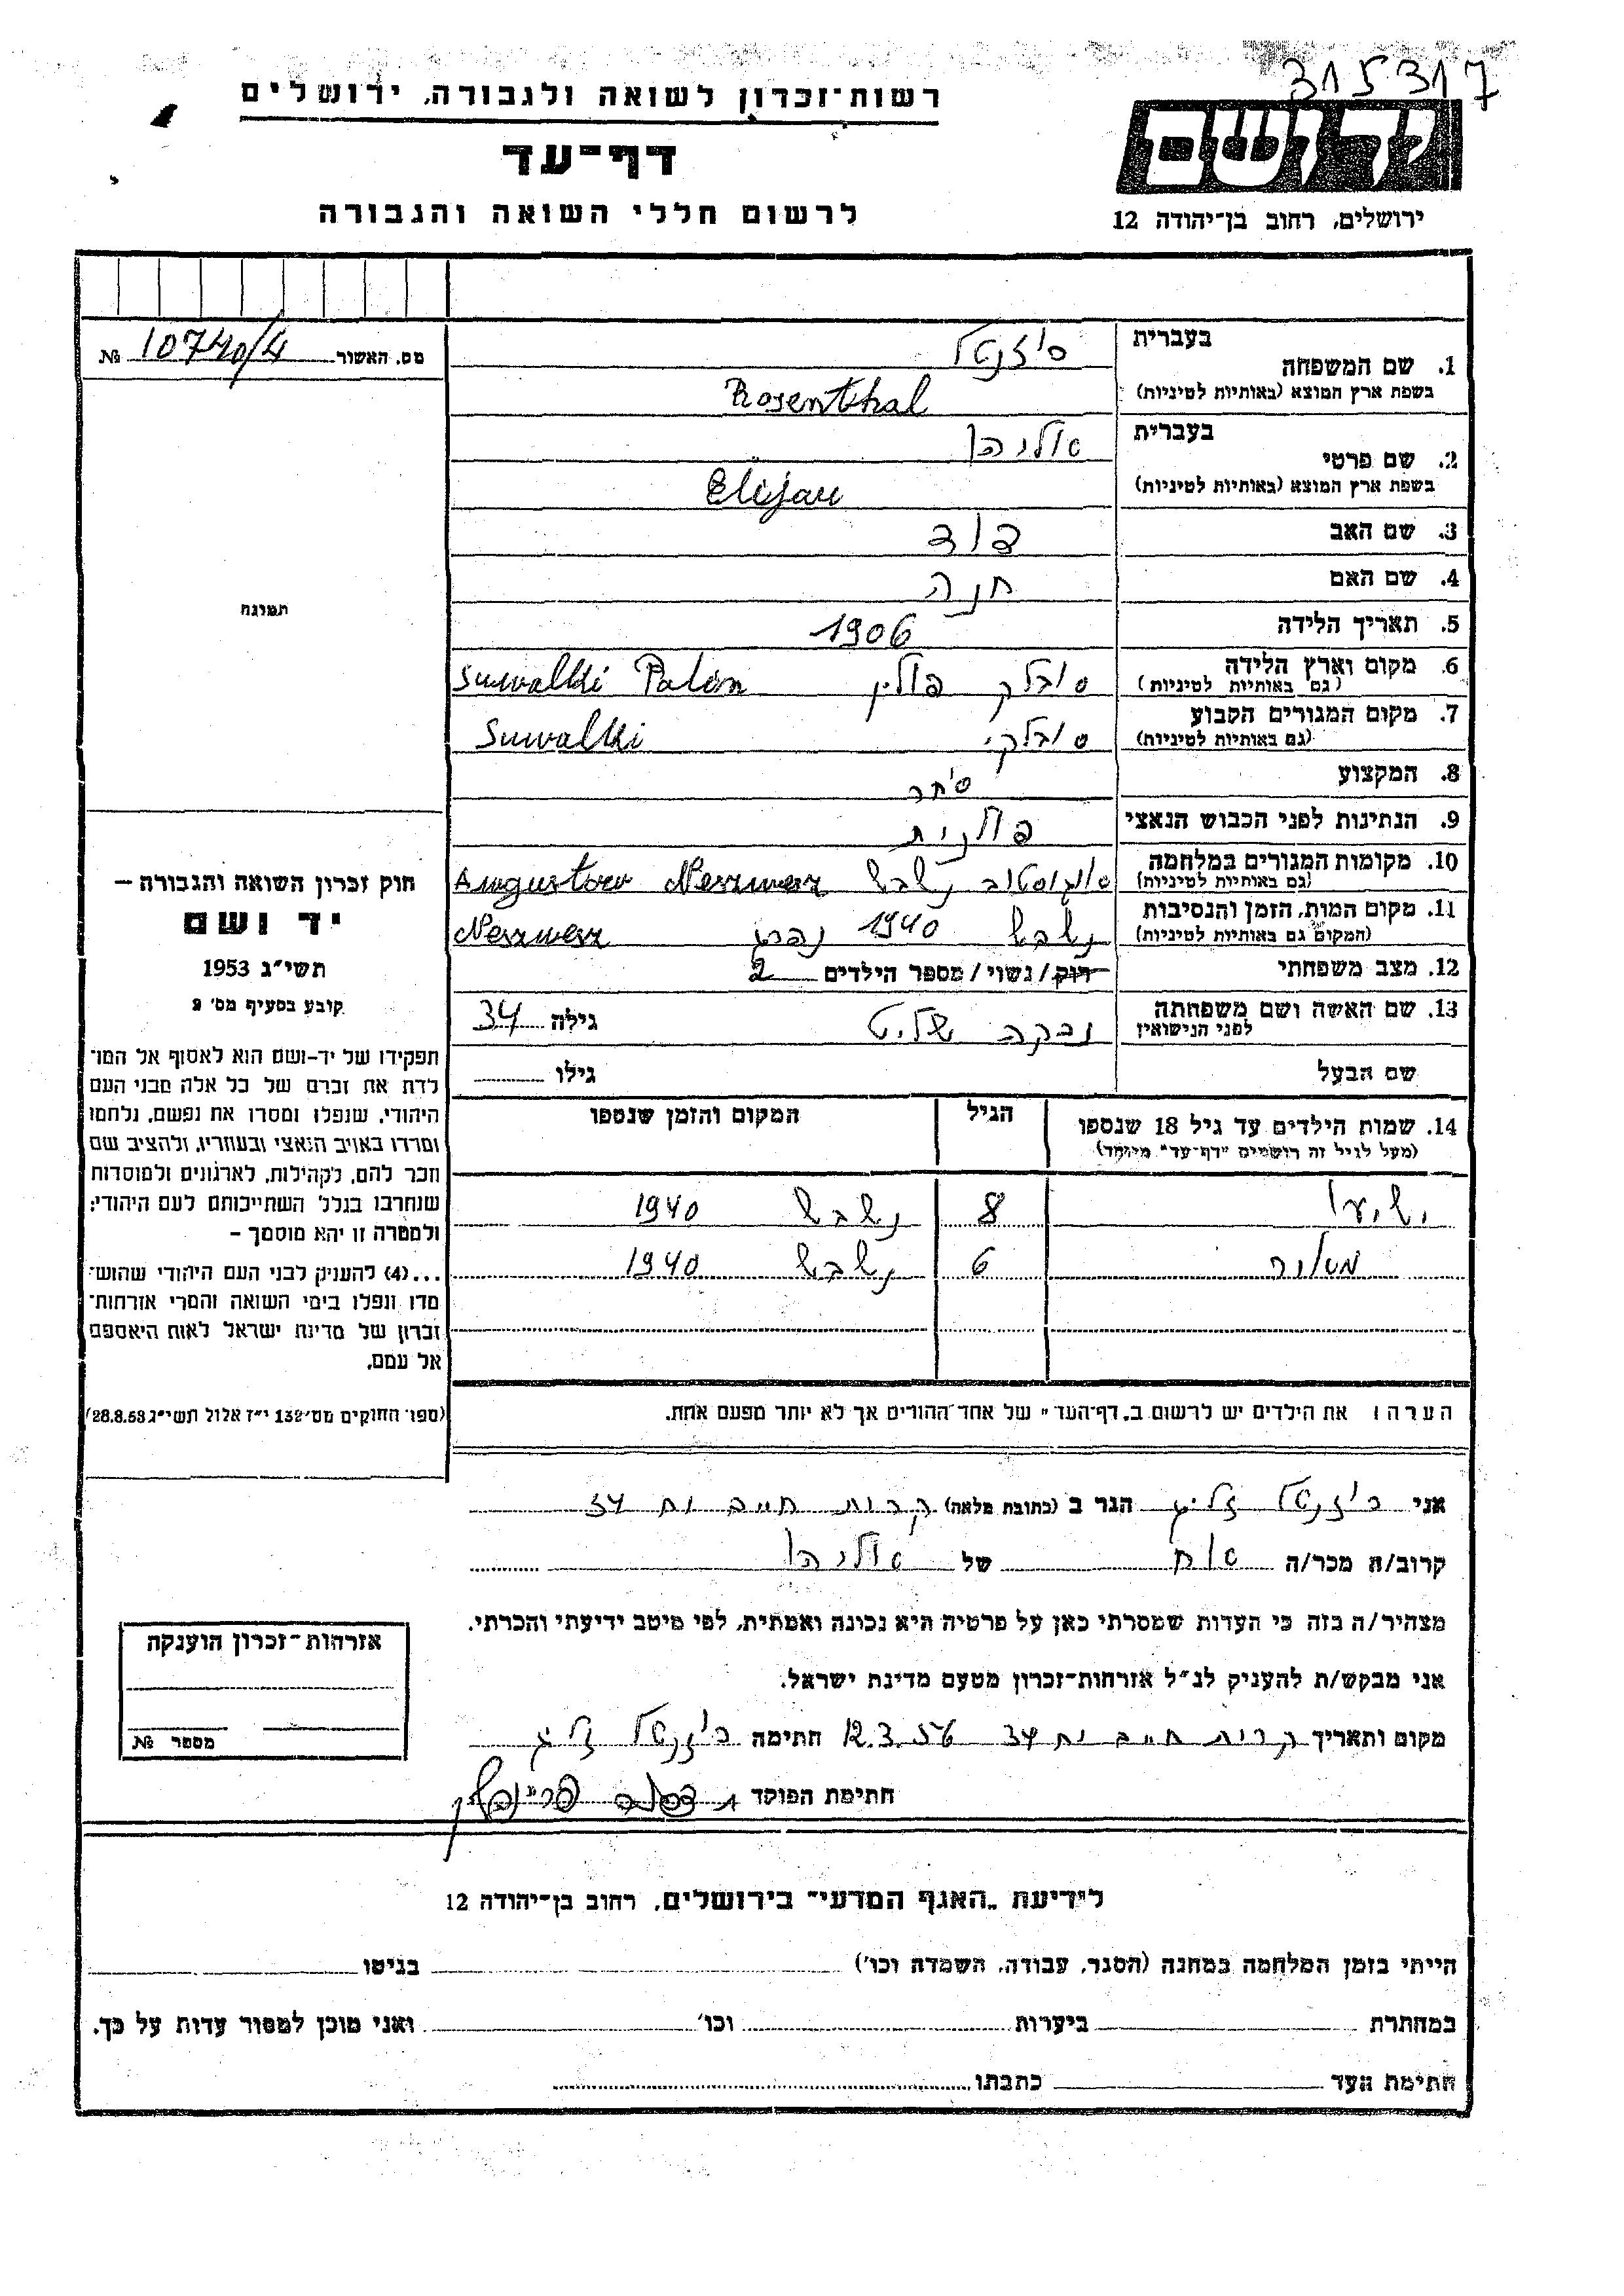 315317
רשות־זכרון לשואה ולגבורה, ירושלים
ידושם
דף־עד
לרשום חללי השואה והגבורה
ירושלים, רחוב בן־יהודה 12
מס. האשור 10740/4 №
בעברית
1. שם המשפחה
בשפת ארץ המוצא (באותיות לטיניות) Rosenthal
בעברית אליהו
2. שם פרטי
בשפת ארץ המוצא (באותיות לטיניות) Elijau
3. שם האב דוד
4. שם האם חנה
5. תאריך הלידה 1906
6. מקום וארץ הלידה סובלק פולין Suwalki Polen
(גם באותיות לטיניות)
7. מקום המגורים הקבוע סובלקי Suwalki
(גם באותיות לטיניות)
8. המקצוע סוחר
9. הנתינות לפני הכבוש הנאצי פולנית
10. מקומות המגורים במלחמה Augustow
(גם באותיות לטיניות)
11. מקום המות, הזמן והנסיבות 1940
(המקום גם באותיות לטיניות)
12. מצב משפחתי רווק/נשוי/מספר הילדים 2
13. שם האשה ושם משפחתה רבקה גילה 34
לפני הנישואין
שם הבעל גילו
14. שמות הילדים עד גיל 18 שנספו הגיל המקום והזמן שנספו
(מעל לגיל זה רושמים "דף־עד" מיוחד)
8 1940
מאיר 6 1940
הערה: את הילדים יש לרשום ב„דף־העד" של אחד ההורים אך לא יותר מפעם אחת.
תמונה
חוק זכרון השואה והגבורה –
יד ושם
תשי״ג 1953
קובע בסעיף מס׳ 2
תפקידו של יד-ושם הוא לאסוף אל המו־
לדת את זכרם של כל אלה מבני העם
היהודי, שנפלו ומסרו את נפשם, נלחמו
ומרדו באויב הנאצי ובעוזריו, ולהציב שם
וזכר להם, לקהילות, לארגונים ולמוסדות
שנחרבו בגלל השתייכותם לעם היהודי;
ולמטרה זו יהא מוסמך –
...(4) להעניק לבני העם היהודי שהוש־
מדו ונפלו בימי השואה והמרי אזרחות־
זכרון של מדינת ישראל לאות היאספם
אל עמם.
(ספר החוקים מס׳ 132 י״ז אלול תשי״ג 28.8.53)
אני רוזנטל זליג הגר ב (כתובת מלאה) קרית חיים 34
קרוב/ה מכר/ה אח של אליהו
מצהיר/ה בזה כי העדות שמסרתי כאן על פרטיה היא נכונה ואמתית, לפי מיטב ידיעתי והכרתי.
אני מבקש/ת להעניק לנ״ל אזרחות־זכרון מטעם מדינת ישראל.
מקום ותאריך קרית חיים 34 12.3.56 חתימה רוזנטל זליג
חתימת הפוקד
אזרחות־זכרון הוענקה
מספר №
לידיעת „האגף המדעי" בירושלים, רחוב בן־יהודה 12
הייתי בזמן המלחמה במחנה (הסגר, עבודה, השמדה וכו׳) בגיטו
במחתרת ביערות וכו׳ ואני מוכן למסור עדות על כך.
חתימת העד כתבתו